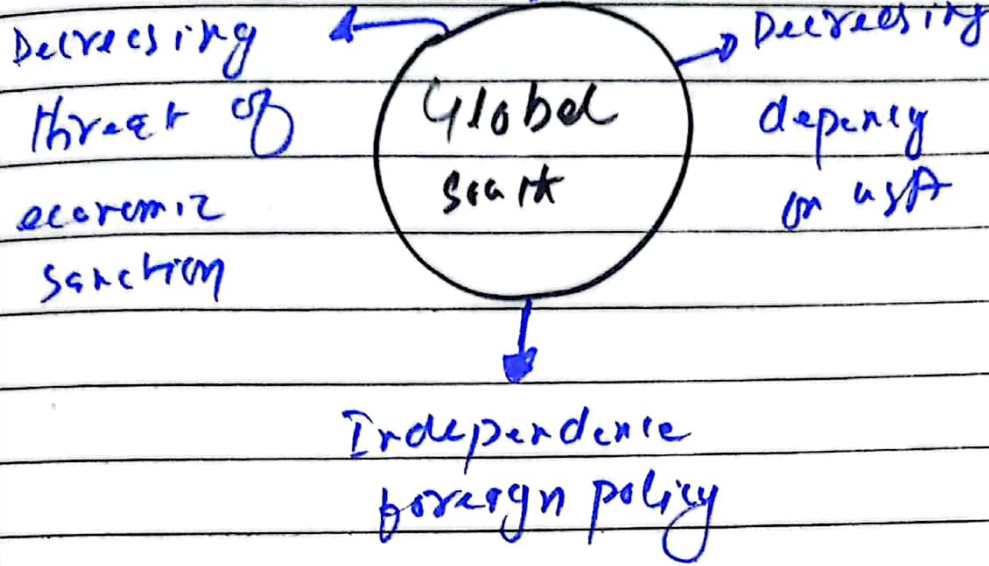 Decreesing
threat of
economic
sanction
Global
South
Decreesing
depency
on USA
Independence
foreign policy